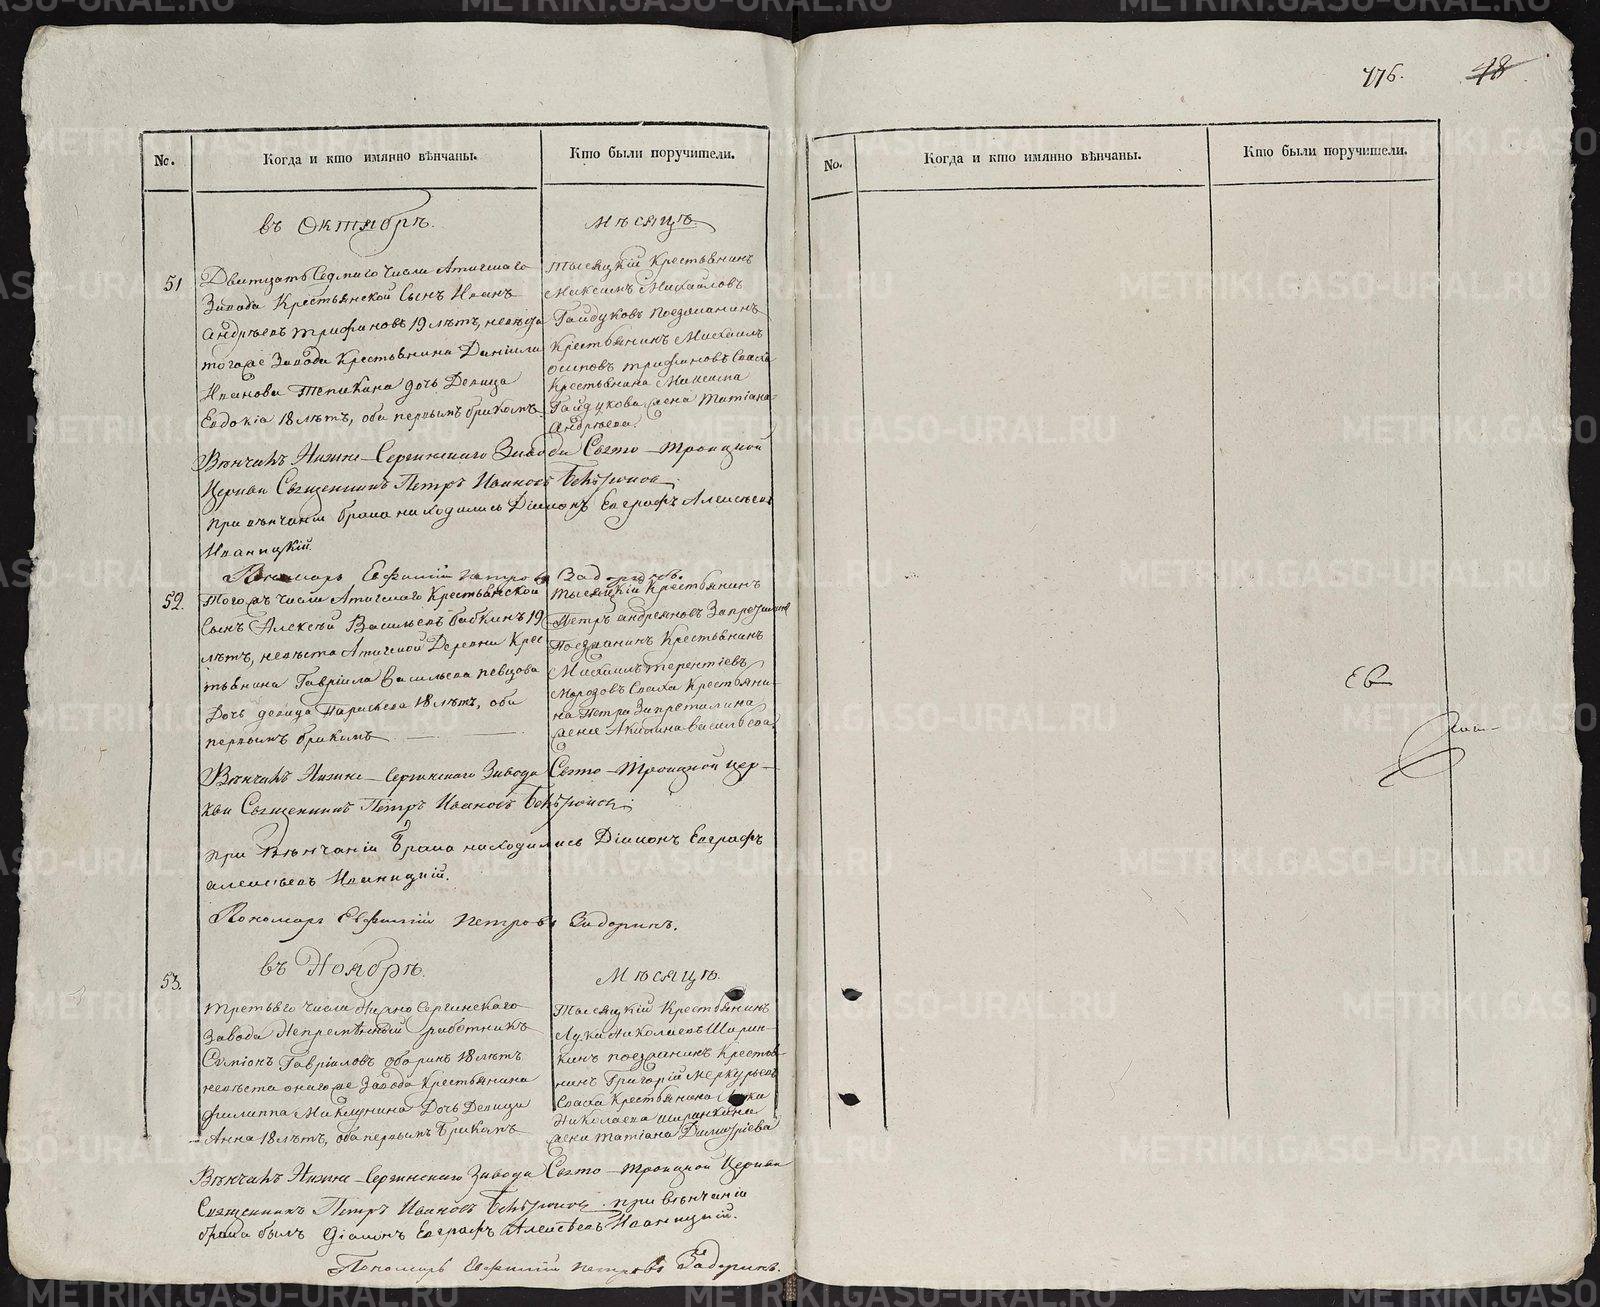 776. 48
№. Когда и кто имянно вѣнчаны. Кто были поручители.
въ Октябрѣ. мѣсяцѣ
51 Дватцать Седмаго числа Атигскаго
Завода Крестьянской Сынъ Иванъ
Андрѣевъ Трифановъ 19 лѣтъ, невѣста
тогоже Завода Крестьянина Даніила
Иванова Тепикина дочь Девица
Евдокія 18 лѣтъ, оба первымъ бракомъ.
Тысяцкій Крестьянинъ
Максимъ Михаиловъ
Гайдуковъ Поезжанинъ
Крестьянинъ Михаилъ
осиповъ трифановъ Сваха
Крестьянина Максима
Гайдукова жена Татіана
Андрѣева.
Вѣнчалъ Нижне-Сергинскаго Завода Свято-Троицкой
Церкви Священникъ Петръ Ивановъ
при вѣнчаніи брака находились Діаконъ Евграфъ Алексѣевъ
Иваницкій.
Пономарь Евфимій петровъ Задоринъ.
52. Тогожъ числа Атигскаго Крестьянской
Сынъ Алексѣй Васильевъ бабкинъ 19
лѣтъ, невѣста Атигской Деревни Крес
тьянина Гавріила Васильева певцова
Дочь девица Параскева 18 лѣтъ, оба
первымъ бракомъ
Тысяцкій Крестьянинъ
Петръ андреяновъ
Поезжанинъ Крестьянинъ
Михаилъ терентіевъ
Морозовъ Сваха Крестьяни-
на Петра Запретилина
жена Акилина васильева
Вѣнчалъ Нижне-Сергинскаго Завода Свято-Троицкой цер-
кви Священникъ Петръ Ивановъ
при Вѣнчаніи Брака находились Діаконъ Евграфъ
алексѣевъ Иваницкій.
Пономарь Евфимій Петровъ Задоринъ.
въ Ноябрѣ. Мѣсяцѣ.
53. третьяго числа Нижно Сергинскаго
Завода Непремѣнный работникъ
Симіонъ Гавріиловъ оборинъ 18 лѣтъ
невѣста онагоже Завода Крестьянина
филиппа Миклунина Дочь Девица
Анна 18 лѣтъ, оба первымъ Бракомъ
Тысяцкій Крестьянинъ
Лука Николаевъ Ширин-
кинъ поезжанинъ Крестья-
нинъ Григорій Меркурьевъ
Сваха Крестьянина Луки
Николаева ширинкина
жена татіана Дмитріева
Вѣнчалъ Нижне-Сергинскаго Завода Свято-Троицкой Церкви
Священникъ Петръ Ивановъ при вѣнчаніи
брака былъ Діаконъ Евграфъ Алексѣевъ Иваницкій.
Пономарь Евфимій петровъ Задоринъ.
№. Когда и кто имянно вѣнчаны. Кто были поручители.
METRIKI.GASO-URAL.RU